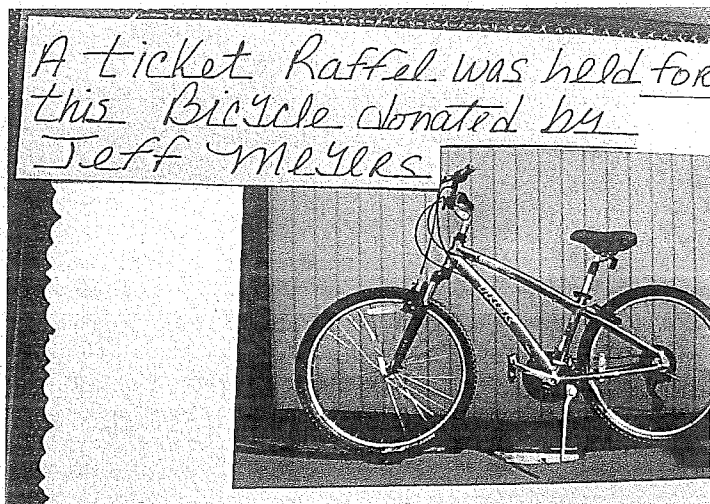 A ticket Raffel was held for
this Bicycle donated by
Jeff Meyers
TREK